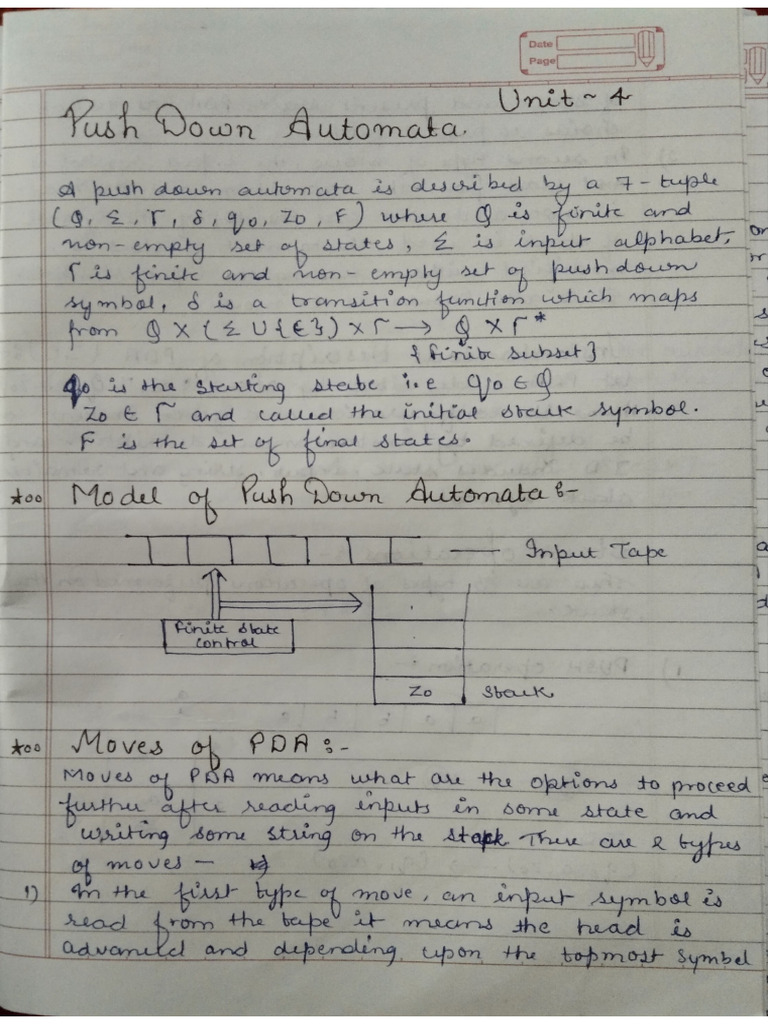 Date
Page
Unit ~ 4
Push Down Automata.
A push down automata is described by a 7-tuple
(Q, Σ, Γ, δ, q0, Z0, F) where Q is finite and
non-empty set of states, Σ is input alphabet,
Γ is finite and non-empty set of pushdown
symbol, δ is a transition function which maps
from Q X (Σ U {ϵ}) x Γ → Q X Γ*
{finite subset}
q0 is the starting state i.e q0 ∈ Q
Z0 ∈ Γ and called the initial stack symbol.
F is the set of final states.
*00 Model of Push Down Automata :-
Input Tape
finite state
control
Z0 Stack
*00 Moves of PDA :-
Moves of PDA means what are the options to proceed
further after reading inputs in some state and
writing some string on the stack There are 2 types
of moves -
1) In the first type of move, an input symbol is
read from the tape it means the head is
advanced and depending upon the topmost symbol